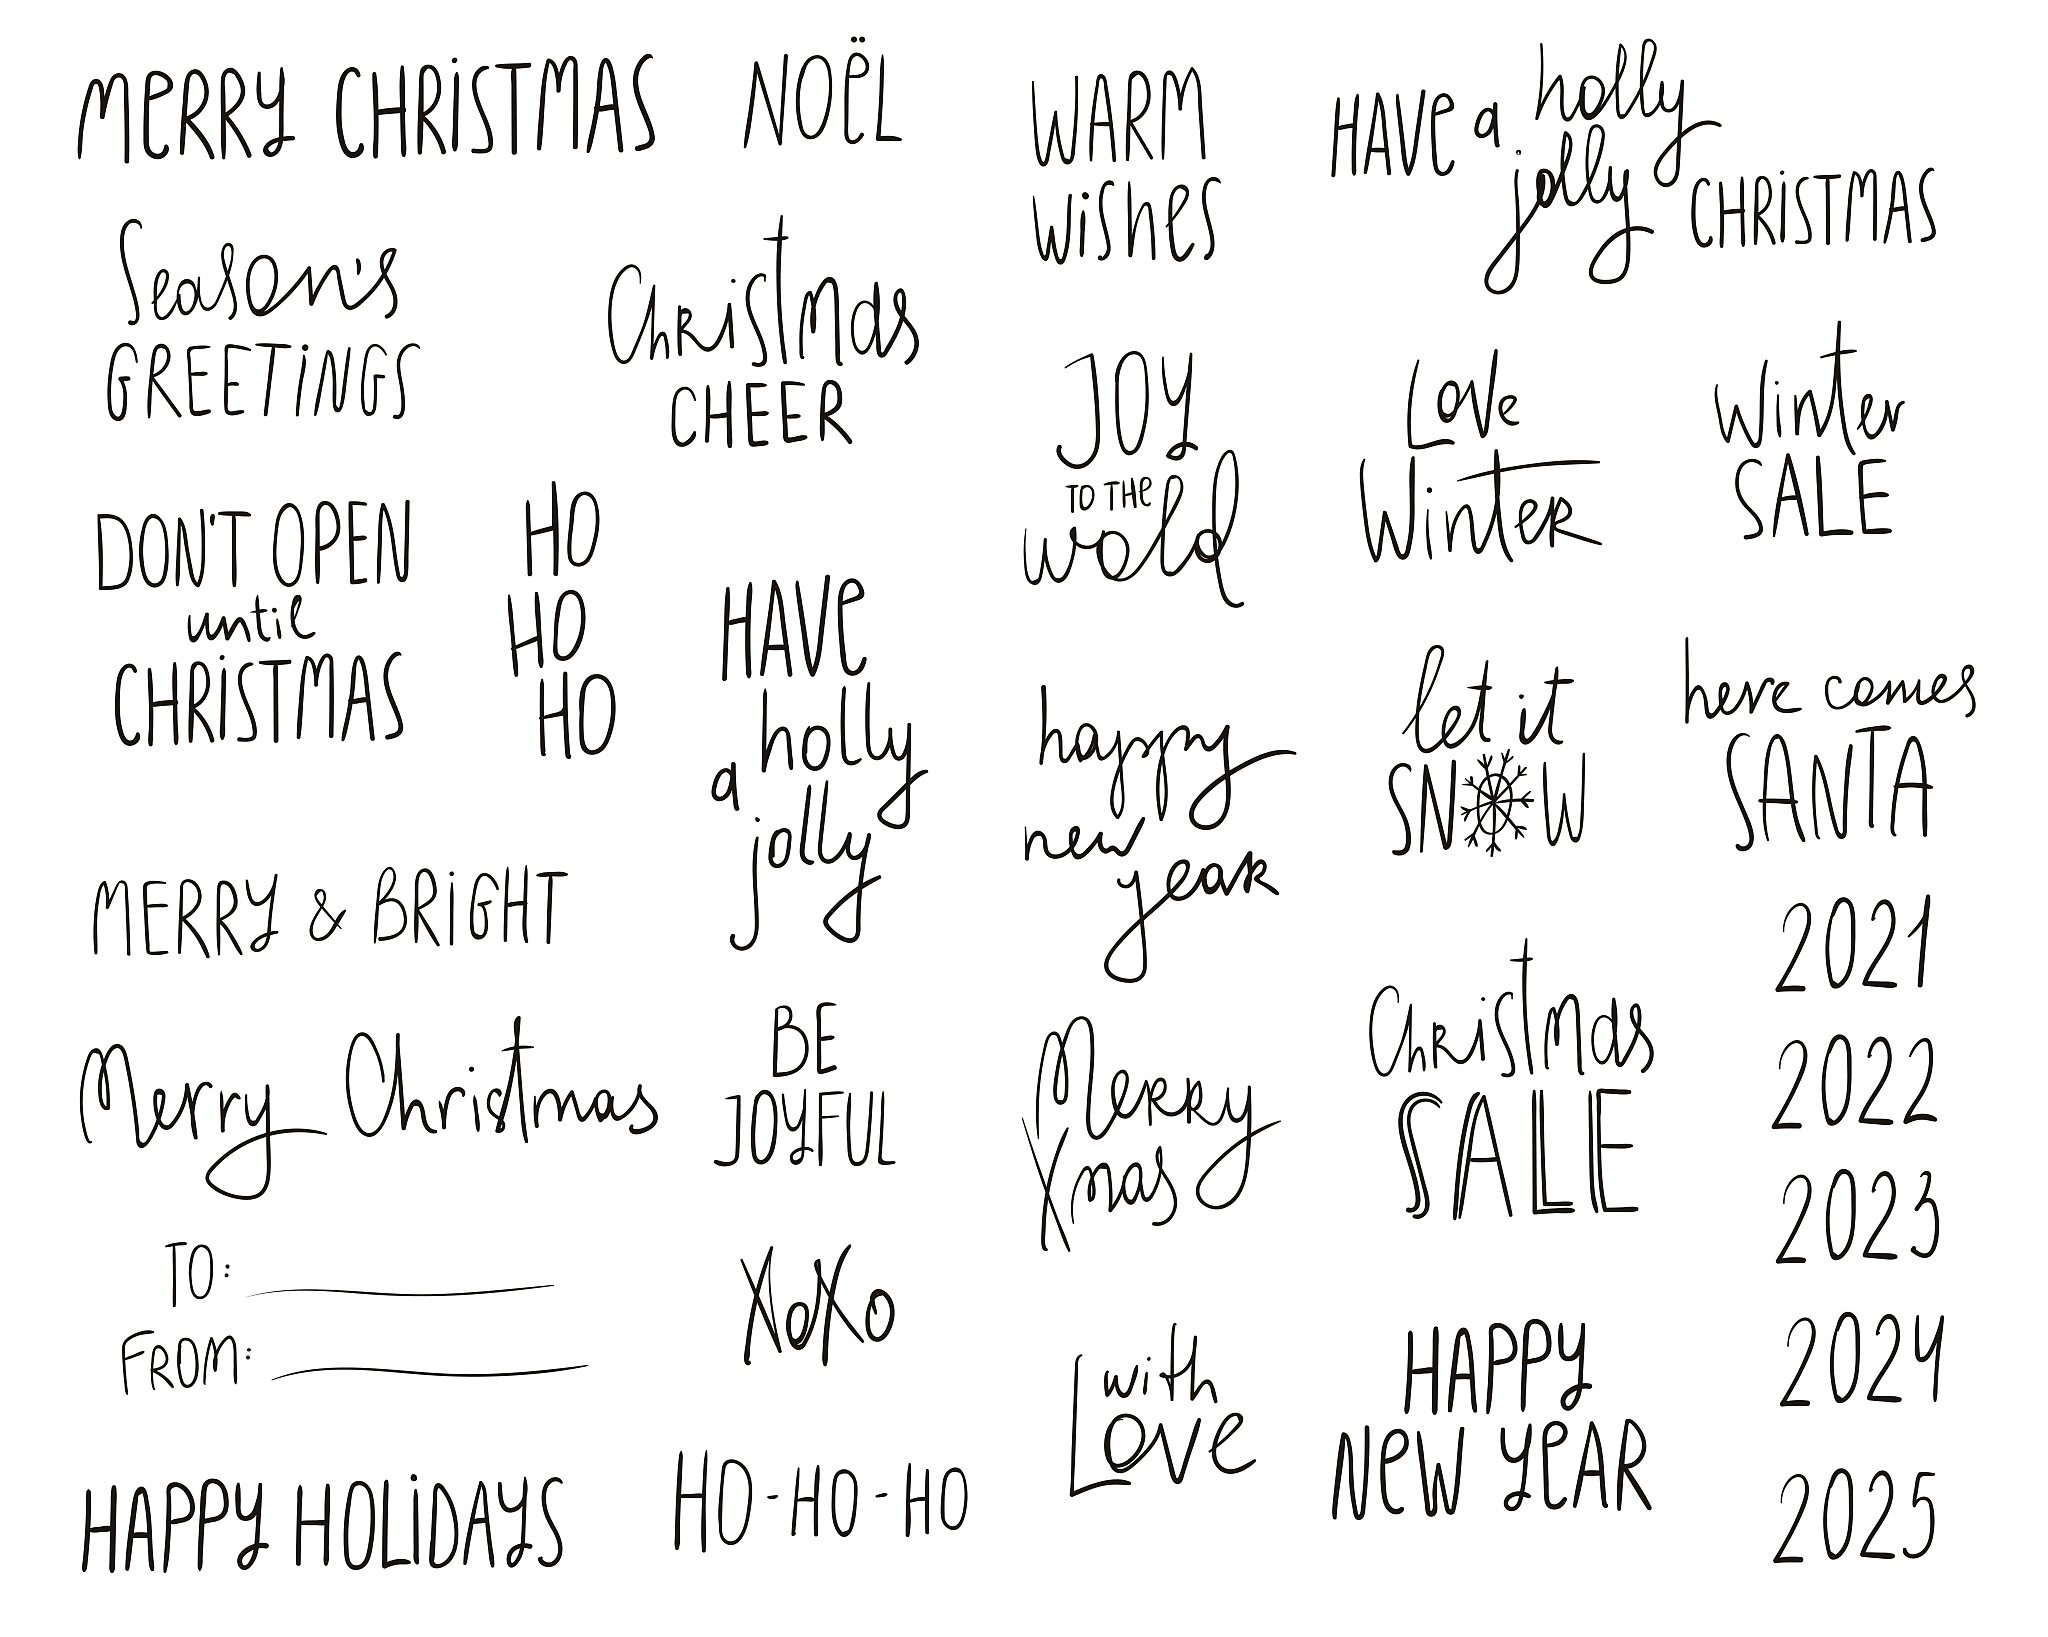 MERRY CHRISTMAS
NOËL
Season's
GREETINGS
Christmas
CHEER
DON'T OPEN
until
CHRISTMAS
HO
HO
HO
HAVE
a holly
jolly
MERRY & BRIGHT
Merry Christmas
BE
JOYFUL
TO:
FROM:
XoXo
HAPPY HOLIDAYS
HO-HO-HO
WARM
WISHES
HAVE a holly
jolly
CHRISTMAS
JOY
TO THE
wold
Love
Winter
Winter
SALE
happy
new
year
let it
SNOW
here comes
SANTA
Merry
Xmas
Christmas
SALE
with
Love
HAPPY
NEW YEAR
2021
2022
2023
2024
2025